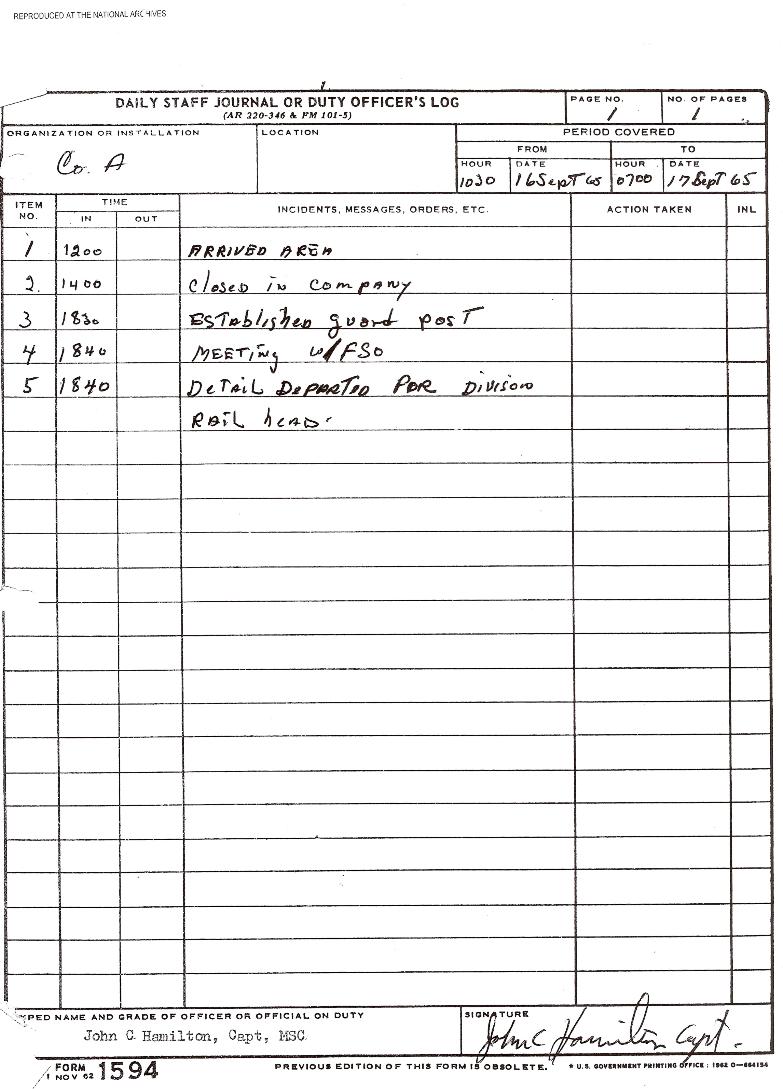 REPRODUCED AT THE NATIONAL ARCHIVES
1
DAILY STAFF JOURNAL OR DUTY OFFICER'S LOG
(AR 220-346 & FM 101-5)
PAGE NO.
1
NO. OF PAGES
1
ORGANIZATION OR INSTALLATION
Co. A
LOCATION
PERIOD COVERED
FROM
TO
HOUR
DATE
HOUR
DATE
1030
16 Sept 65
0700
17 Sept 65
ITEM NO.
TIME
IN
OUT
INCIDENTS, MESSAGES, ORDERS, ETC.
ACTION TAKEN
INL
1 1200 ARRIVED AREA
2. 1400 Closed in company
3 1830 ESTablished guard posT
4 1840 MEETING w/FSO
5 1840 DETAIL DEPARTED FOR DIVISON
RAIL hEAD.
PED NAME AND GRADE OF OFFICER OR OFFICIAL ON DUTY
John C. Hamilton, Capt, MSC
SIGNATURE
John C Hamilton Capt.
FORM 1594
1 NOV 62
PREVIOUS EDITION OF THIS FORM IS OBSOLETE.
* U.S. GOVERNMENT PRINTING OFFICE : 1962 O—664154